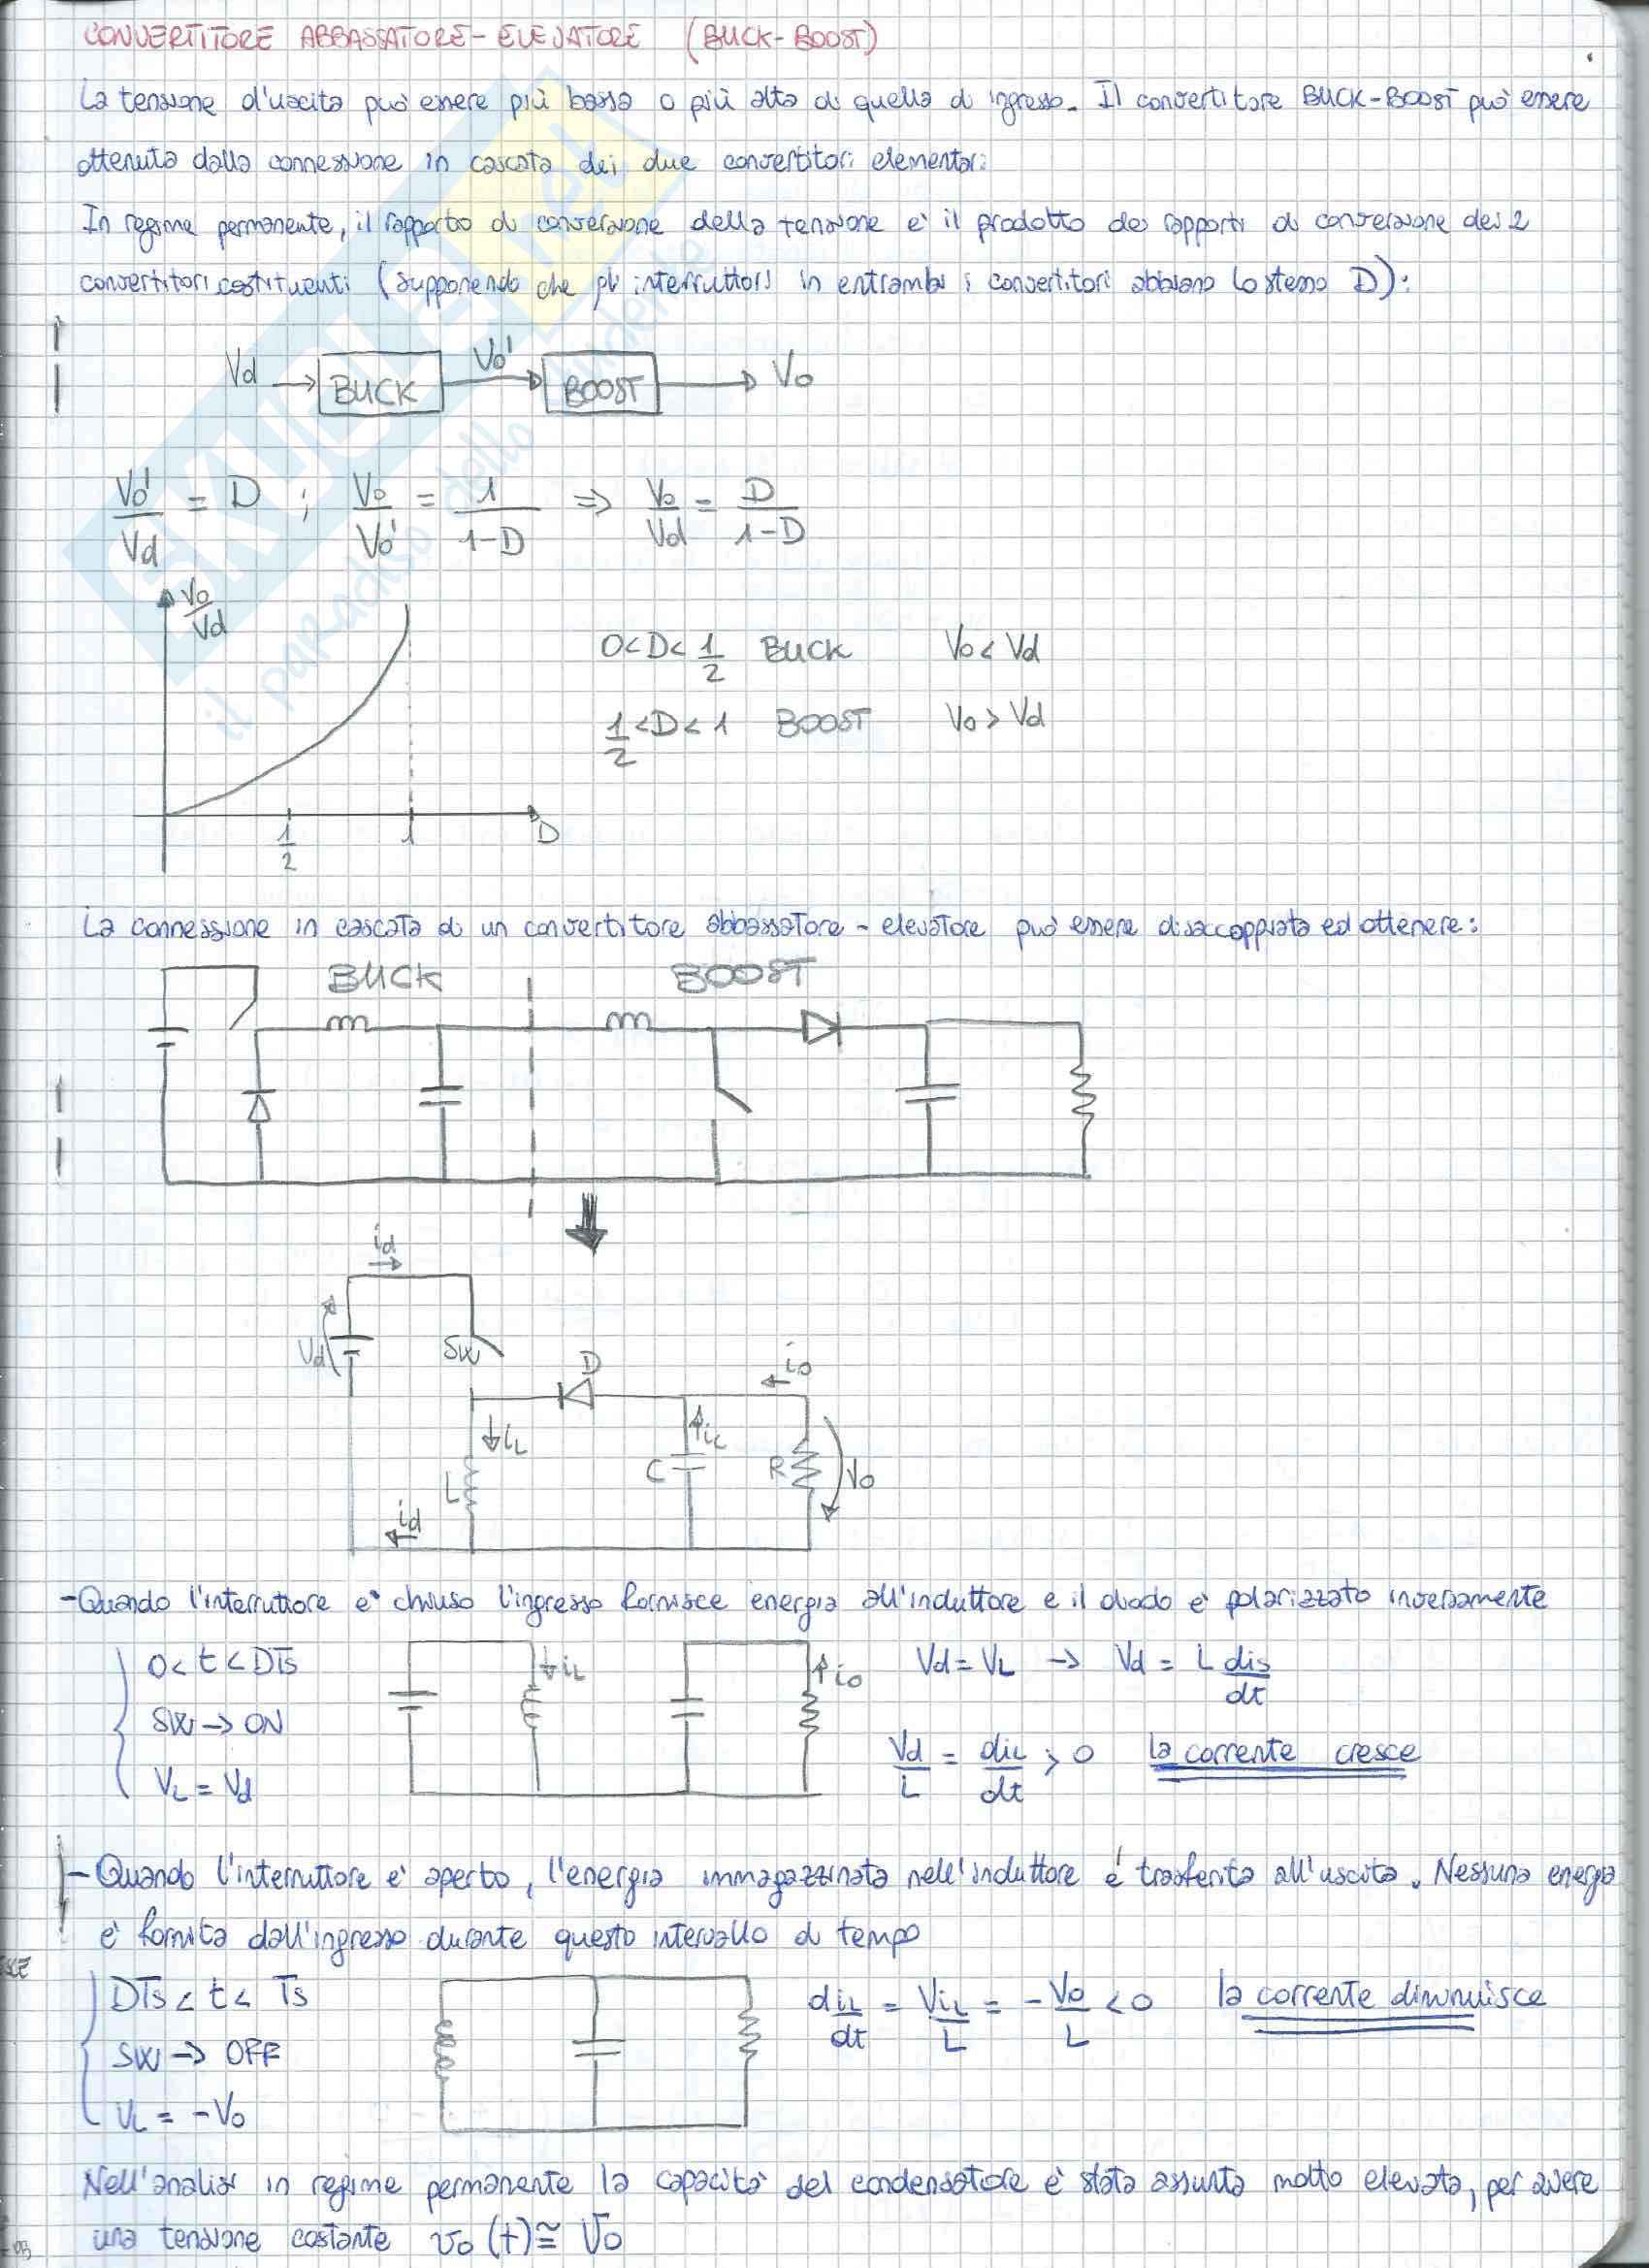 CONVERTITORE ABBASSATORE-ELEVATORE (BUCK-BOOST)
La tensione d'uscita può essere più bassa o più alta di quella di ingresso. Il convertitore BUCK-BOOST può essere
ottenuto dalla connessione in cascata dei due convertitori elementari.
In regime permanente, il rapporto di conversione della tensione è il prodotto dei rapporti di conversione dei 2
convertitori costituenti (supponendo che gli interruttori in entrambi i convertitori abbiano lo stesso D):
Vd → BUCK Vo' → BOOST → Vo
Vo'/Vd = D ; Vo/Vo' = 1/(1-D) ⇒ Vo/Vd = D/(1-D)
Vo/Vd
0<D<1/2 BUCK Vo<Vd
1/2<D<1 BOOST Vo>Vd
1/2 1 D
La connessione in cascata di un convertitore abbassatore-elevatore può essere disaccoppiata ed ottenere:
BUCK BOOST
id
Vd SW D io
iL ic
L C R Vo
id
-Quando l'interruttore è chiuso l'ingresso fornisce energia all'induttore e il diodo è polarizzato inversamente
0<t<DTs iL io Vd = VL → Vd = L dis/dt
SW → ON
VL = Vd Vd/L = diL/dt > 0 la corrente cresce
- Quando l'interruttore è aperto, l'energia immagazzinata nell'induttore é trasferita all'uscita. Nessuna energia
è fornita dall'ingresso durante questo intervallo di tempo
DTs < t < Ts diL/dt = ViL/L = -Vo/L <0 la corrente diminuisce
SW → OFF
VL = -Vo
Nell'analisi in regime permanente la capacità del condensatore è stata assunta molto elevata, per avere
una tensione costante vo(t) ≅ Vo
SKUOLA.net
il paradiso dello studente